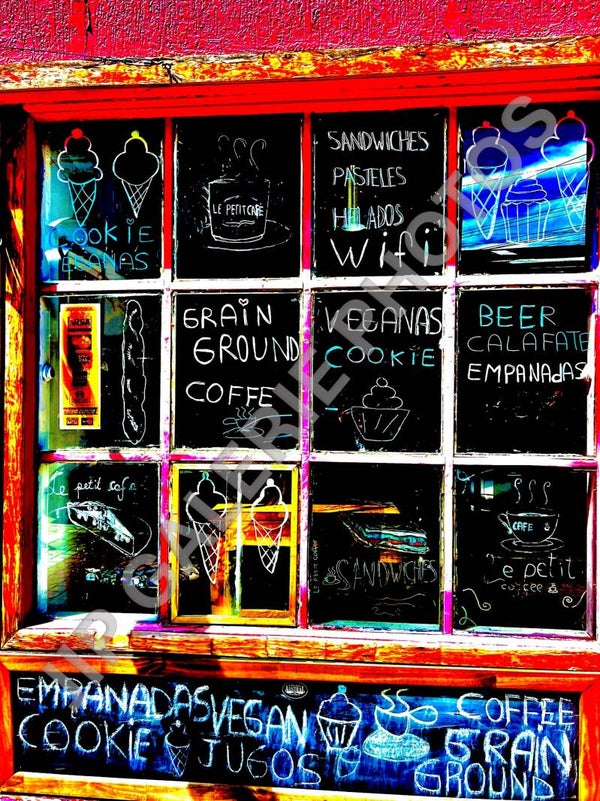 COOKIE
VEGANAS
LE PETIT CAFE
SANDWICHES
PASTELES
HELADOS
Wifi
GRAIN
GROUND
COFFE
VEGANAS
COOKIE
BEER
CALAFATE
EMPANADAS
le petit cafe
SANDWICHES
CAFE
le petit
coffee
EMPANADAS VEGAN
COOKIE JUGOS
COFFEE
GRAIN
GROUND
GALERIE PHOTOS